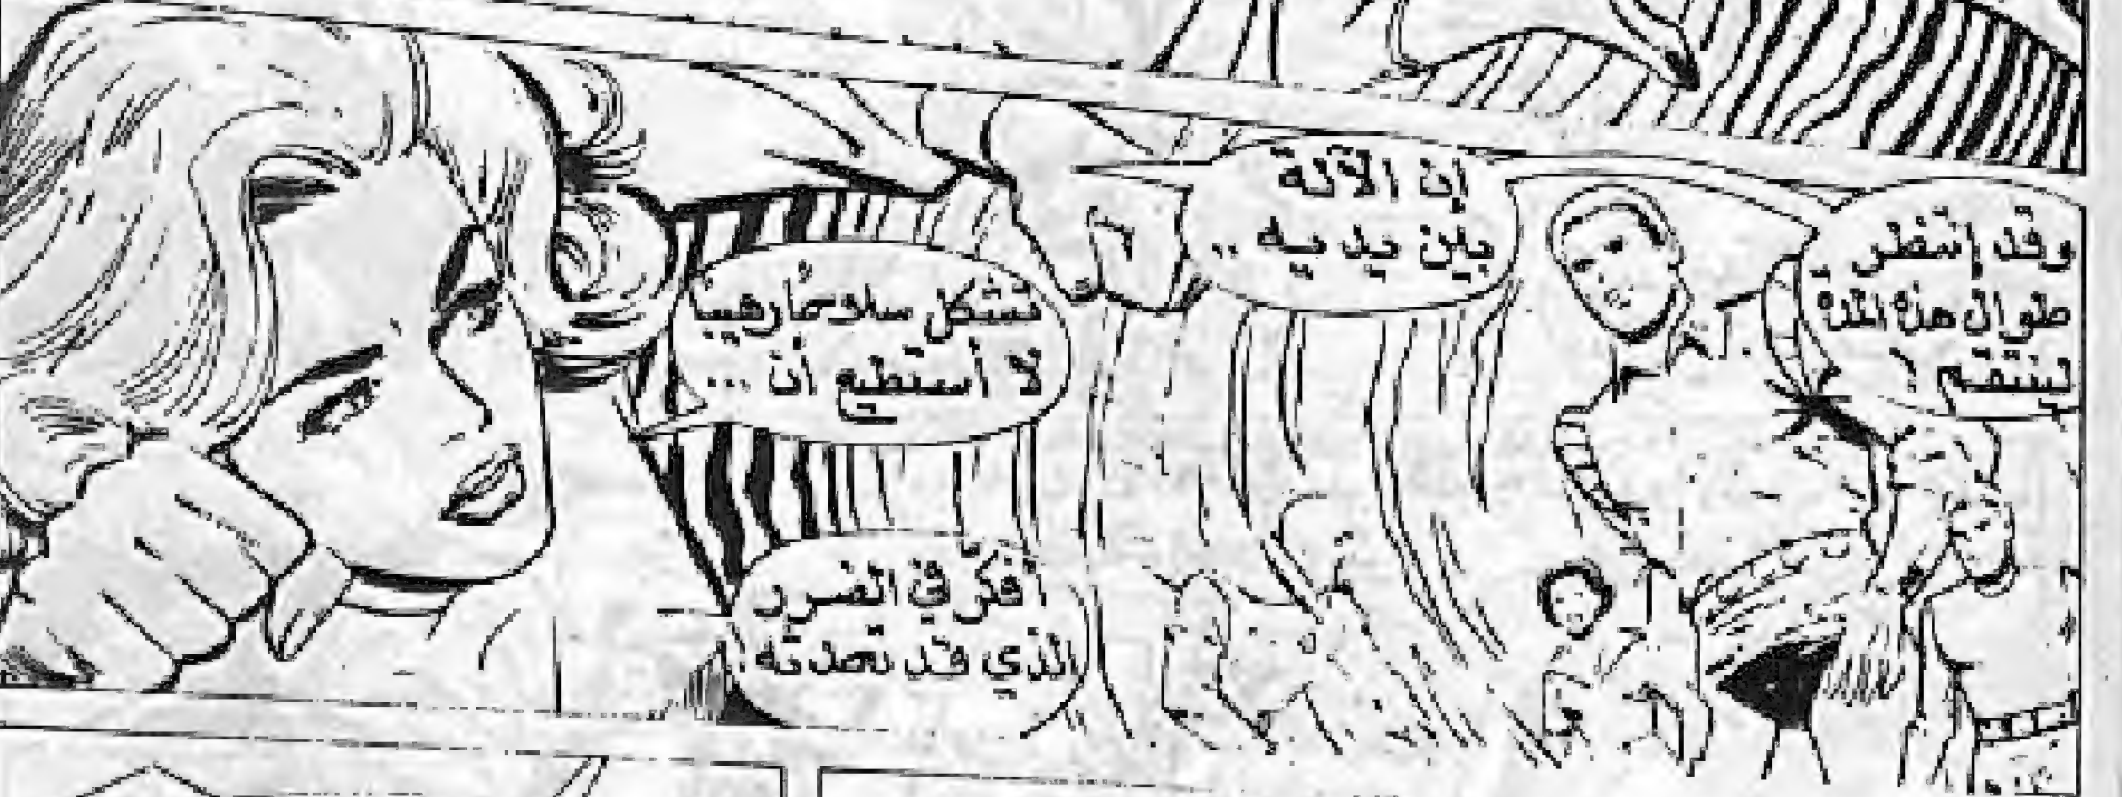 وقد إنتظر
طوال هذه المدة
لينتقم !
إن الآلة
بين يديه ..
تشكل سلاحًا رهيبًا
لا أستطيع أن ...
أفكر في الضرر
الذي قد تحدثه !